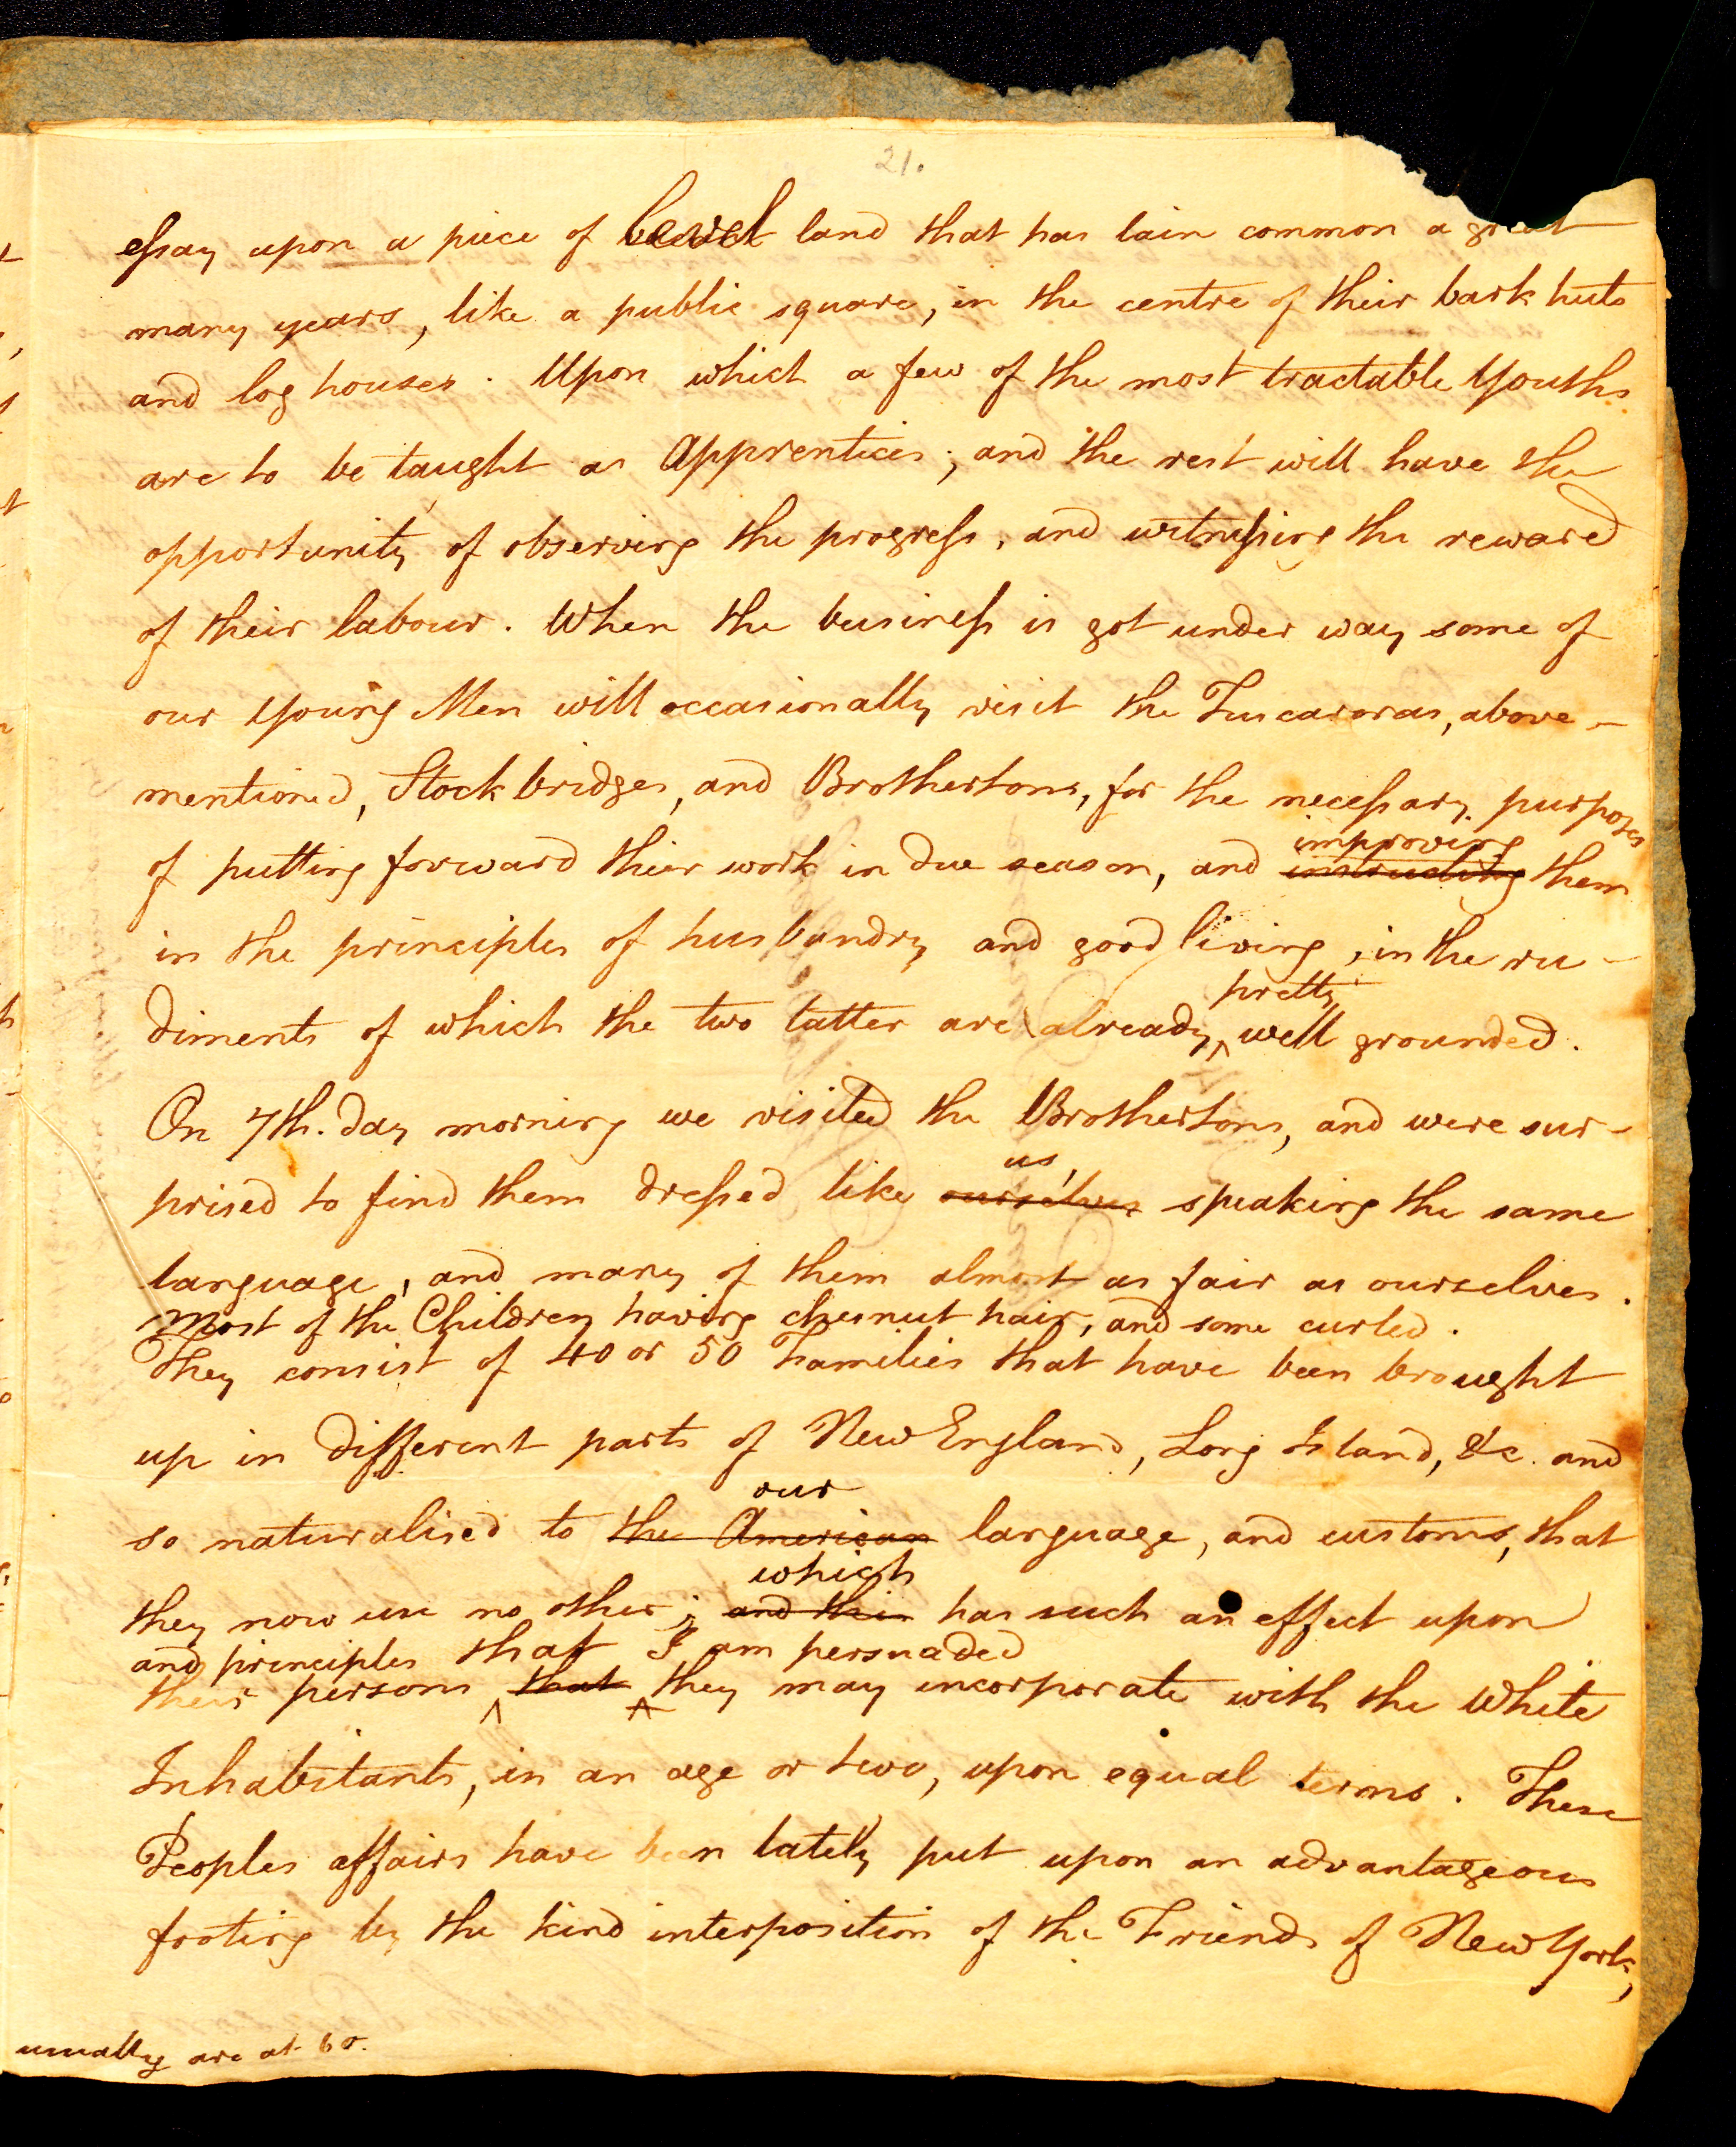 21.
essay upon a piece of level land that has lain common a great
many years, like a public square, in the centre of their bark huts
and log houses. Upon which a few of the most tractable Youths
are to be taught as Apprentices; and the rest will have the
opportunity of observing the progress, and witnessing the reward
of their labour. When the business is got under way some of
our Young Men will occasionally visit the Tuscaroras, above-
mentioned, Stockbridges, and Brothertons, for the necessary purposes
improving
of putting forward their work in due season, and instructing them
in the principles of husbandry and good living, in the ru-
pretty
diments of which the two latter are already ^ well grounded.
On 7th. day morning we visited the Brothertons, and were sur-
us,
prised to find them dressed like ourselves speaking the same
language, and many of them almost as fair as ourselves.
Most of the Children having chesnut hair, and some curled.
They consist of 40 or 50 Families that have been brought
up in different parts of New England, Long Island, &c. and
our
so naturalised to the American language, and customs, that
which
they now use no other; and this has such an effect upon
and principles that I am persuaded
their persons ^ that ^ they may incorporate with the White
Inhabitants, in an age or two, upon equal terms. These
Peoples affairs have been lately put upon an advantageous
footing by the kind interposition of the Friends of New York,
usually are at 60.